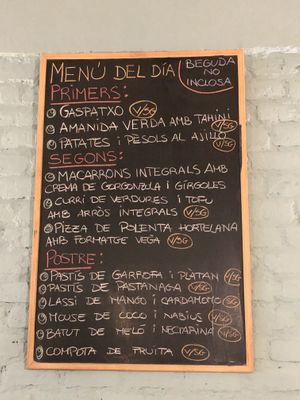 MENÚ DEL DÍA
BEGUDA
NO
INCLOSA
PRIMERS:
GASPATXO V/SG
AMANIDA VERDA AMB TAHINI V/SG
PATATES i PÈSOLS AL AJILLO V/SG
SEGONS:
MACARRONS INTEGRALS AMB
CREMA DE GORGONZOLA i GÍRGOLES
CURRI DE VERDURES i TOFU
AMB ARRÒS INTEGRALS V/SG
PIZZA DE POLENTA HORTELANA
AMB FORMATGE VEGÀ V/SG
POSTRE:
PASTÍS DE GARROFA i PLÀTAN V/SG
PASTÍS DE PASTANAGA V/SG
LASSI DE MANGO i CARDAMOMO SG
MOUSE DE COCO i NABIUS V/SG
BATUT DE MELÓ i NECTARINA V/SG
COMPOTA DE FRUITA V/SG